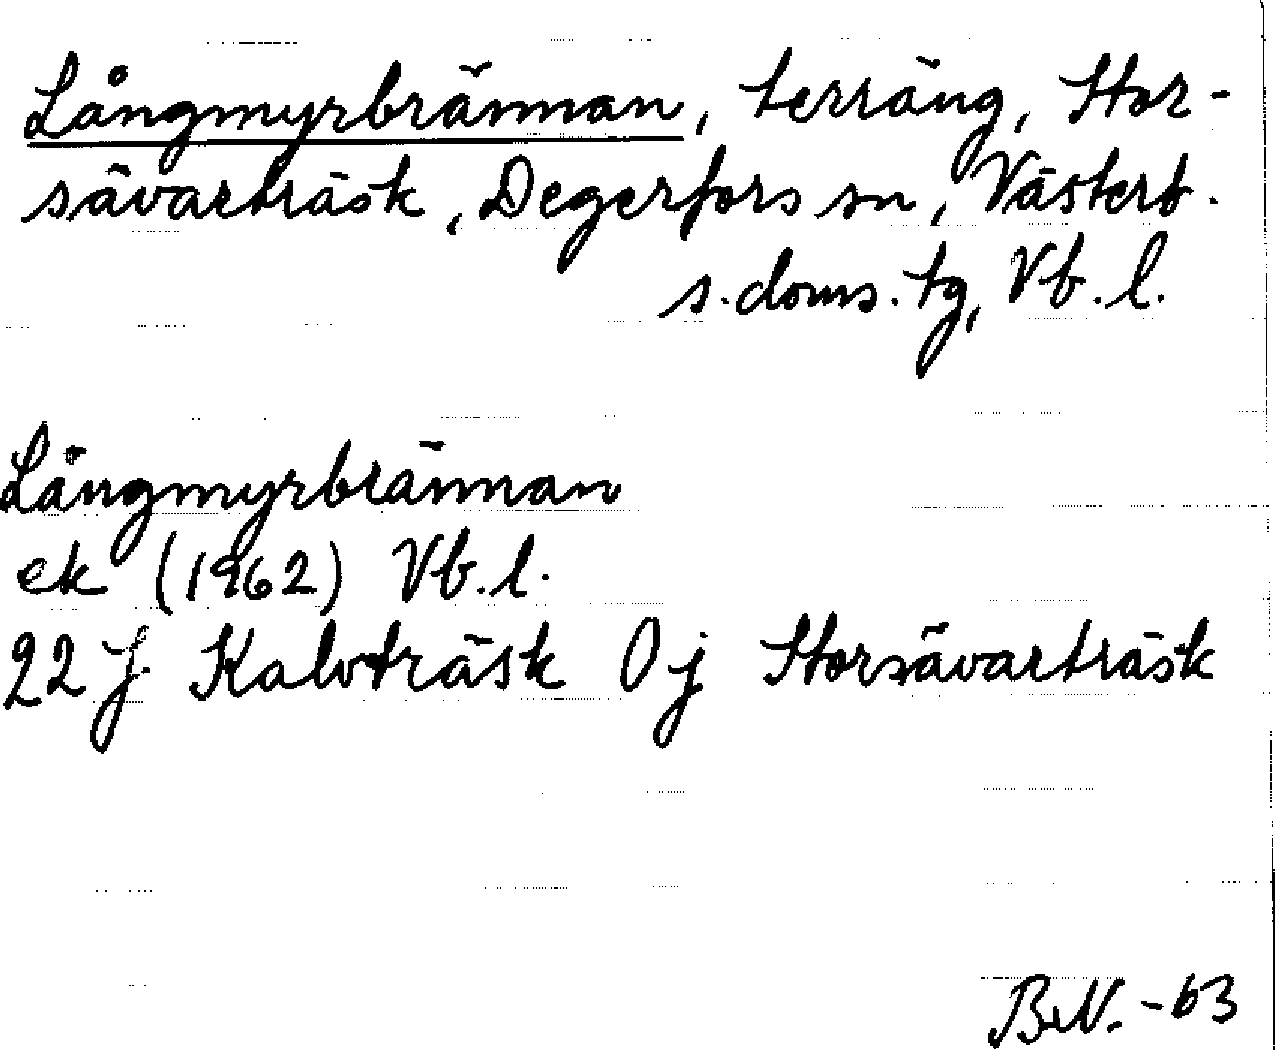 Långmyrbrännan, terräng, Stor-
sävarträsk, Degerfors sn, Västerb.
s. doms. tg, Vb. l.
Långmyrbrännan
ek (1962) Vb. l.
22 J Kalvträsk 0 j Storsävarträsk
B.N. -63